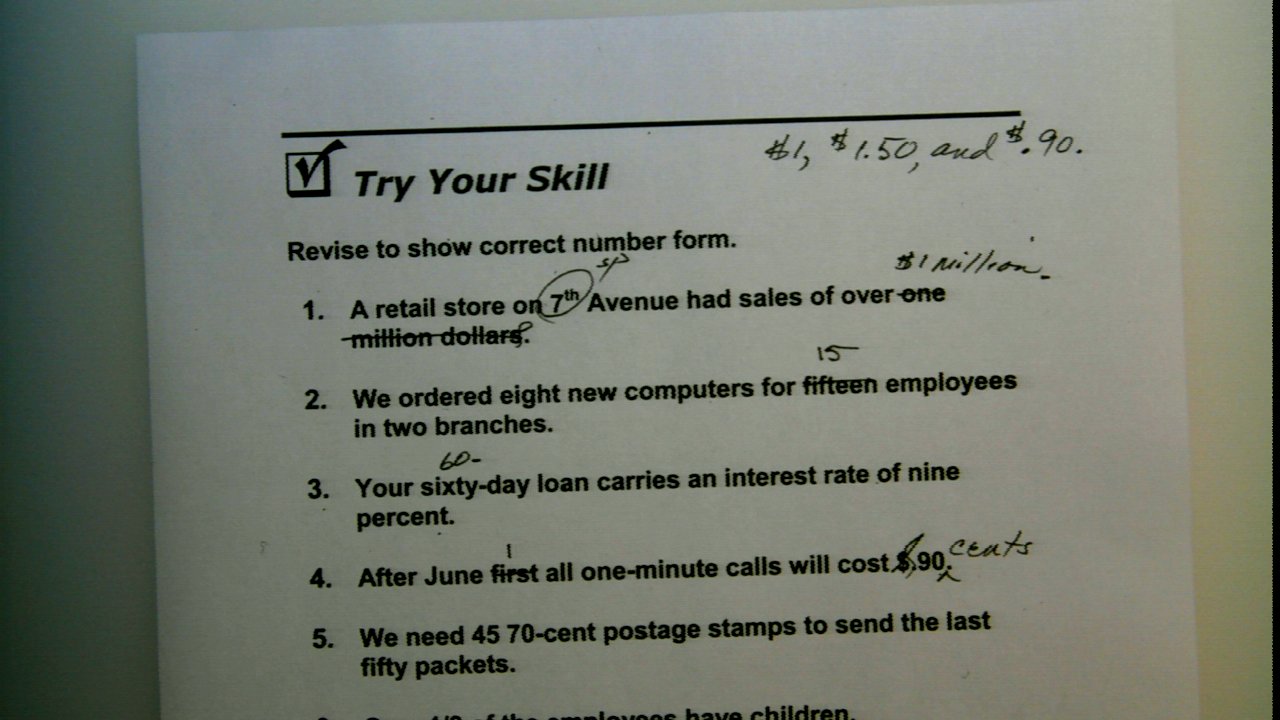 $1, $1.50, and $.90.
Try Your Skill
Revise to show correct number form.
sp
$1 million.
1. A retail store on 7th Avenue had sales of over one
million dollars.
15
2. We ordered eight new computers for fifteen employees
in two branches.
60-
3. Your sixty-day loan carries an interest rate of nine
percent.
1
cents
4. After June first all one-minute calls will cost $.90.
5. We need 45 70-cent postage stamps to send the last
fifty packets.
1/3 of the employees have children.